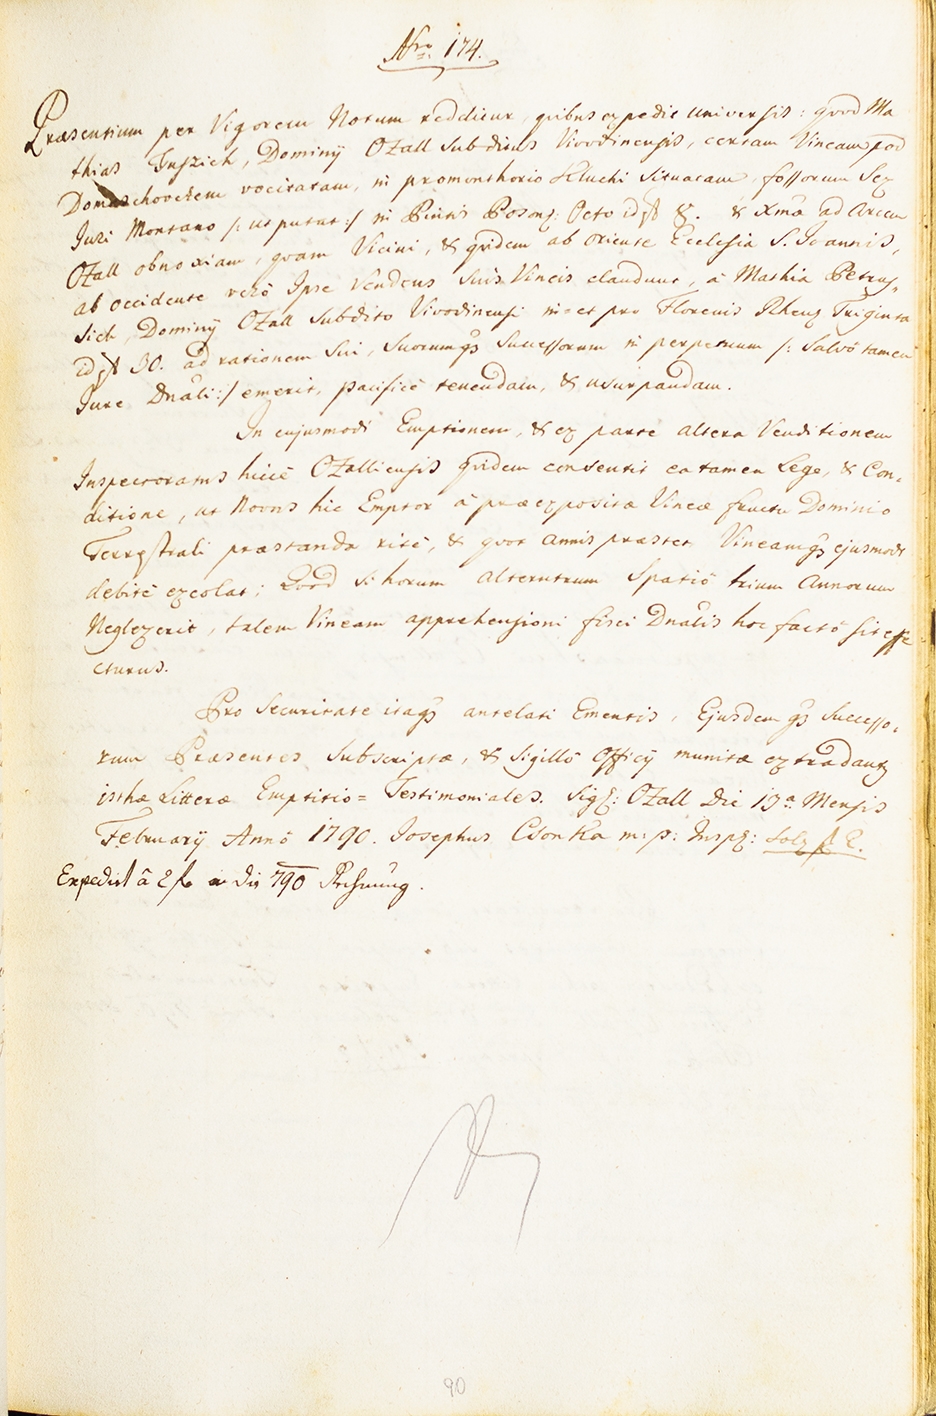 Nro 174.
Præsentium per Vigorem Notum redditur, quibus expedit universis: quod Ma
thias Juszich, Dominÿ OZall Subditus Vivodinensis, certam Vineam pod
Domaschovcžem vocitatam, in promonthorio Kluchi Situatam, fossorum Sex
Juri Montano /: ut putat :/ in Pintis Poson: Octo id st 8. & Xma ad Arcem
OZall obnoxiam, quam Vicini, & quidem ab oriente Ecclesia S. Joannis,
ab occidente verò Ipse Vendens Suis Vineis claudunt, à Mathia Petrus,
sich, Dominÿ OZall Subdito Vivodinensi in= et pro Florenis Rhen Triginta
id st 30. ad rationem Sui, Suorumqs Successorum in perpetuum /: Salvô tamen
Jure Dnali :/ emerit, pacificè tenendam, & usurpandam.
In cujusmodi Emptionem, & ex parte altera Venditionem
Inspectoratus hicce OZalliensis quidem consentit ea tamen Lege, & Con,
ditione, ut Novus hic Emptor à præexpositæ Vineæ fructu Dominio
Terrestrali præstanda ritè, & quot annis præstet Vineamqs ejusmodi
debitè excolat; Quod Si horum alterutrum Spatiô trium Annorum
Neglexerit, talem Vineam apprehensioni fisci Dnalis hoc factô sit effe
cturus.
Pro Securitate itaqs antelati Ementis, Ejusdemqs Successo,
rum Præsentes Subscriptæ, & Sigillô Officÿ munitæ extradantur
isthæ Litteræ Emptitio= Testimoniales. Sig: OZall Die 13a Mensis
Februarÿ Annô 1790. Josephus Csonka m: p: Insp:
Expedirt â 2 f dis 790 Rechnung.
90